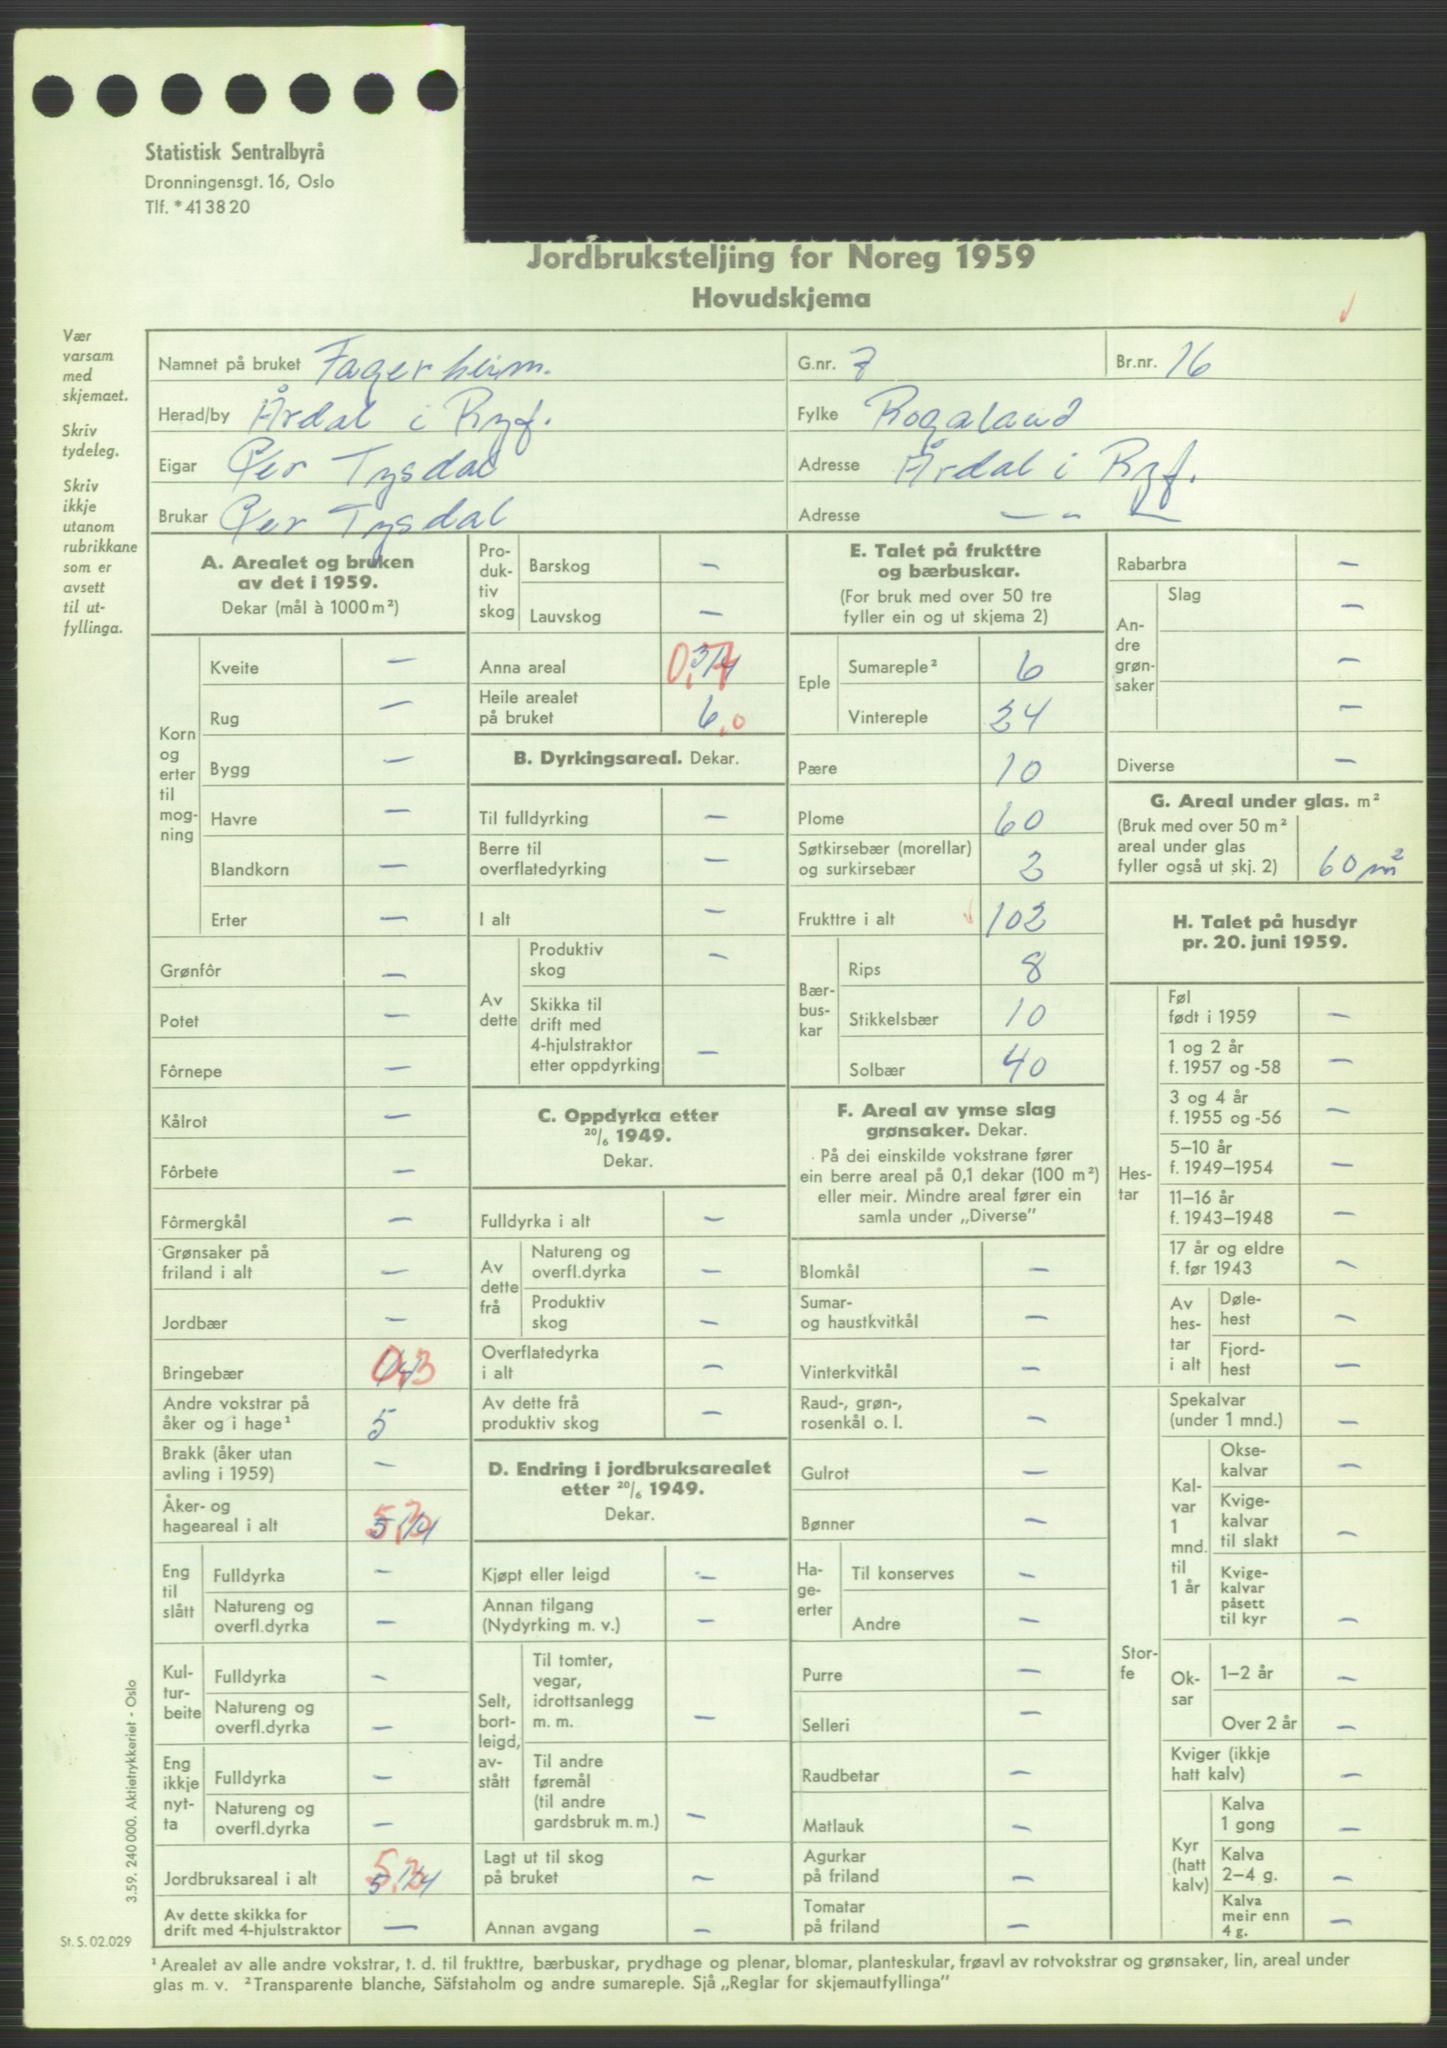 Statistisk Sentralbyrå
Dronningensgt. 16, Oslo
Tlf. *41 38 20
Jordbruksteljing for Noreg 1959
Hovudskjema
Vær
varsam
med
skjemaet.
Skriv
tydeleg.
Skriv
ikkje
utanom
rubrikkane
som er
avsett
til ut-
fyllinga.
Namnet på bruket Fagerheim.
G.nr. 7
Br.nr. 16
Herad/by Årdal i Ryf.
Fylke Rogaland
Eigar Per Tysdal
Adresse Årdal i Ryf.
Brukar Per Tysdal
Adresse — „ —
A. Arealet og bruken
av det i 1959.
Dekar (mål à 1000 m²)
Korn
og
erter
til
mog-
ning
Kveite —
Rug —
Bygg —
Havre —
Blandkorn —
Erter —
Grønfôr —
Potet —
Fôrnepe —
Kålrot —
Fôrbete —
Fôrmergkål —
Grønsaker på
friland i alt —
Jordbær —
Bringebær 0,3
Andre vokstrar på
åker og i hage¹ 5
Brakk (åker utan
avling i 1959) —
Åker- og
hageareal i alt 5,3
Eng
til
slått
Fulldyrka —
Natureng og
overfl.dyrka —
Kul-
tur-
beite
Fulldyrka —
Natureng og
overfl.dyrka —
Eng
ikkje
nyt-
ta
Fulldyrka —
Natureng og
overfl.dyrka —
Jordbruksareal i alt 5,3
Av dette skikka for
drift med 4-hjulstraktor —
Pro-
duk-
tiv
skog
Barskog —
Lauvskog —
Anna areal 0,7
Heile arealet
på bruket 6,0
B. Dyrkingsareal. Dekar.
Til fulldyrking —
Berre til
overflatedyrking —
I alt —
Av
dette
Produktiv
skog —
Skikka til
drift med
4-hjulstraktor
etter oppdyrking —
C. Oppdyrka etter
20/6 1949.
Dekar.
Fulldyrka i alt —
Av
dette
frå
Natureng og
overfl.dyrka —
Produktiv
skog —
Overflatedyrka
i alt —
Av dette frå
produktiv skog —
D. Endring i jordbruksarealet
etter 20/6 1949.
Dekar.
Kjøpt eller leigd —
Annan tilgang
(Nydyrking m. v.) —
Selt,
bort-
leigd,
av-
stått
Til tomter,
vegar,
idrottsanlegg
m. m. —
Til andre
føremål
(til andre
gardsbruk m. m.) —
Lagt ut til skog
på bruket —
Annan avgang —
E. Talet på frukttre
og bærbuskar.
(For bruk med over 50 tre
fyller ein og ut skjema 2)
Eple
Sumareple² 6
Vintereple 24
Pære 10
Plome 60
Søtkirsebær (morellar)
og surkirsebær 2
Frukttre i alt 102
Bær-
bus-
kar
Rips 8
Stikkelsbær 10
Solbær 40
F. Areal av ymse slag
grønsaker. Dekar.
På dei einskilde vokstrane fører
ein berre areal på 0,1 dekar (100 m²)
eller meir. Mindre areal fører ein
samla under „Diverse”
Blomkål —
Sumar-
og haustkvitkål —
Vinterkvitkål —
Raud-, grøn-,
rosenkål o. l. —
Gulrot —
Bønner —
Ha-
ge-
erter
Til konserves —
Andre —
Purre —
Selleri —
Raudbetar —
Matlauk —
Agurkar
på friland —
Tomatar
på friland —
Rabarbra —
An-
dre
grøn-
saker
Slag
—
—
—
Diverse —
G. Areal under glas. m²
(Bruk med over 50 m²
areal under glas
fyller også ut skj. 2) 60 m²
H. Talet på husdyr
pr. 20. juni 1959.
Hes-
tar
Føl
født i 1959 —
1 og 2 år
f. 1957 og -58 —
3 og 4 år
f. 1955 og -56 —
5–10 år
f. 1949–1954 —
11–16 år
f. 1943–1948 —
17 år og eldre
f. før 1943 —
Av
hes-
tar
i alt
Døle-
hest —
Fjord-
hest —
Stor-
fe
Spekalvar
(under 1 mnd.) —
Kal-
var
1
mnd.
til
1 år
Okse-
kalvar —
Kvige-
kalvar
til slakt —
Kvige-
kalvar
påsett
til kyr —
Ok-
sar
1–2 år —
Over 2 år —
Kviger (ikkje
hatt kalv) —
Kyr
(hatt
kalv)
Kalva
1 gong —
Kalva
2–4 g. —
Kalva
meir enn
4 g. —
3.59. 240 000. Aktietrykkeriet - Oslo
St. S. 02.029
¹ Arealet av alle andre vokstrar, t. d. til frukttre, bærbuskar, prydhage og plenar, blomar, planteskular, frøavl av rotvokstrar og grønsaker, lin, areal under
glas m. v. ² Transparente blanche, Säfstaholm og andre sumareple. Sjå „Reglar for skjemautfyllinga”